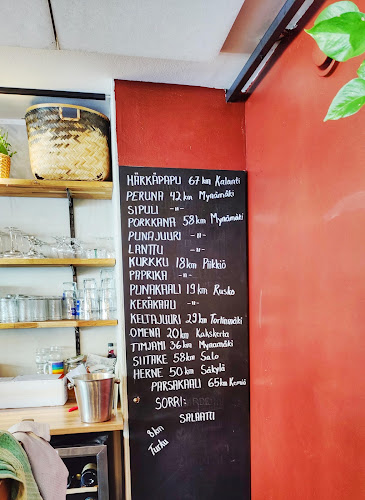 HÄRKÄPAPU 67 km Kalanti
PERUNA 42 km Mynämäki
SIPULI -"-
PORKKANA 58 km Mynämäki
PUNAJUURI -"-
LANTTU -"-
KURKKU 18 km Piikkiö
PAPRIKA -"-
PUNAKAALI 19 km Rusko
KERÄKAALI -"-
KELTAJUURI 29 km Tortinmäki
OMENA 20 km Kakskerta
TIMJAMI 36 km Mynämäki
SIITAKE 58 km Salo
HERNE 50 km Säkylä
PARSAKAALI 65 km Kemiö
SORRI:
SALAATTI
8 km
Turku